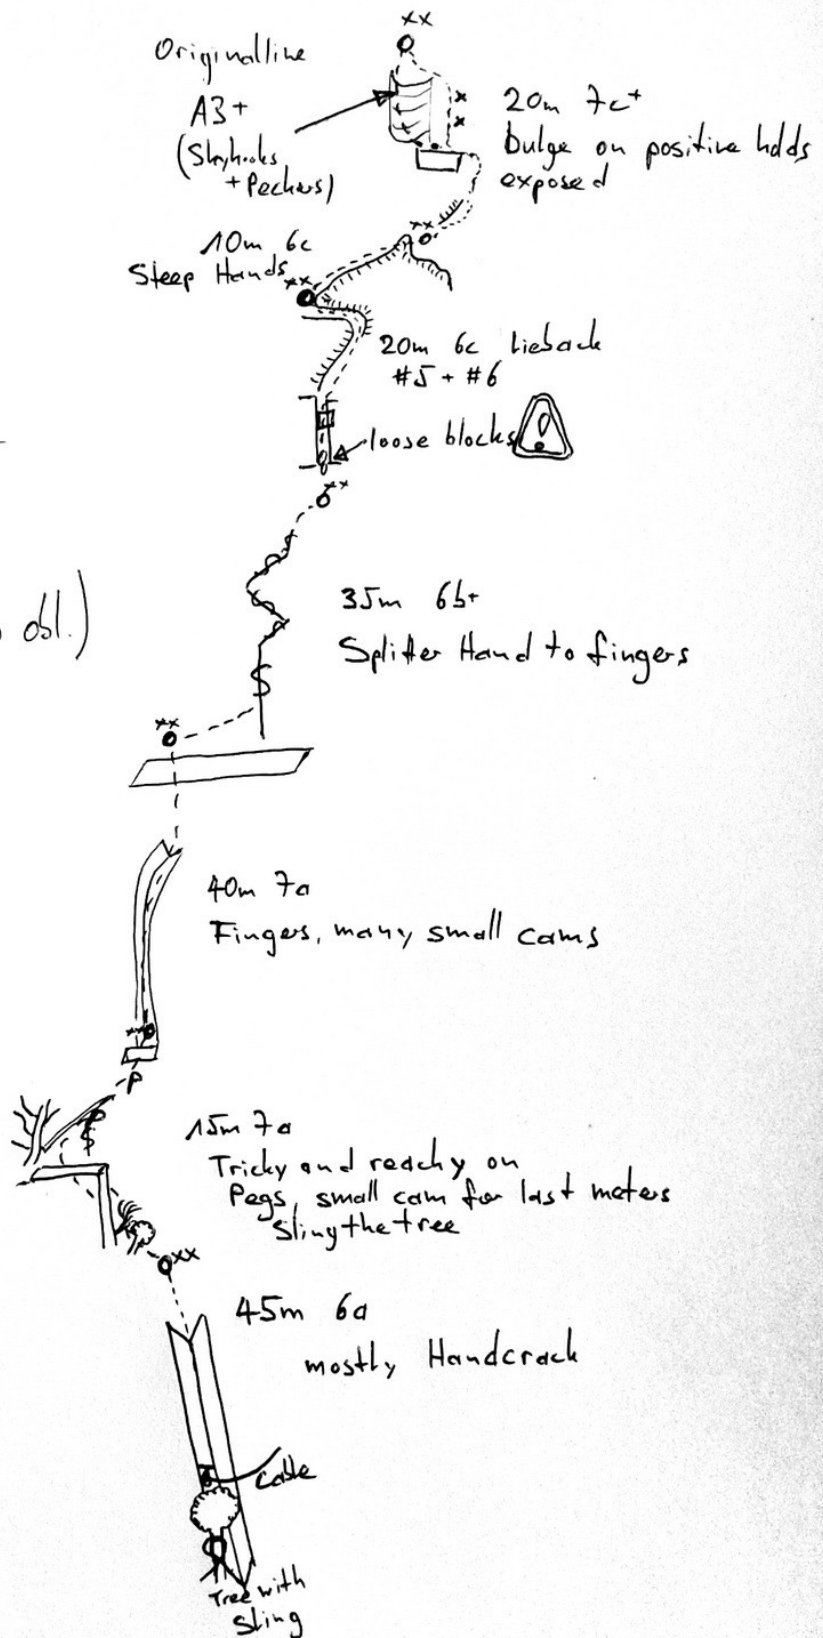 xx
Originalline
A3+
(Skyhooks
+ Peckers)
x
x
20m 7c+
bulge on positive holds
exposed
xx
10m 6c
Steep Hands
xx
20m 6c Lieback
#5 + #6
loose blocks
!
xx
obl.)
35m 6b+
Splitter Hand to fingers
xx
40m 7a
Fingers, many small cams
xx
P
P
15m 7a
Tricky and reachy on
Pegs, small cam for last meters
Sling the tree
xx
45m 6a
mostly Handcrack
Cable
Tree with
Sling